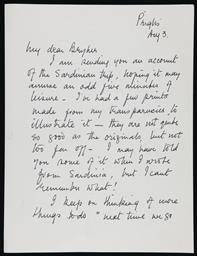 Aug 3.
My dear Bryher,
I am sending you an account
of the Sardinian trip, hoping it may
amuse an odd five minutes of
leisure – I've had a few prints
made from my transparencies to
illustrate it – they are not quite
so good as the originals, but not
too far off – I may have told
you some of it when I wrote
from Sardinia, but I can't
remember what!
I keep on thinking of more
things to do "next time we go